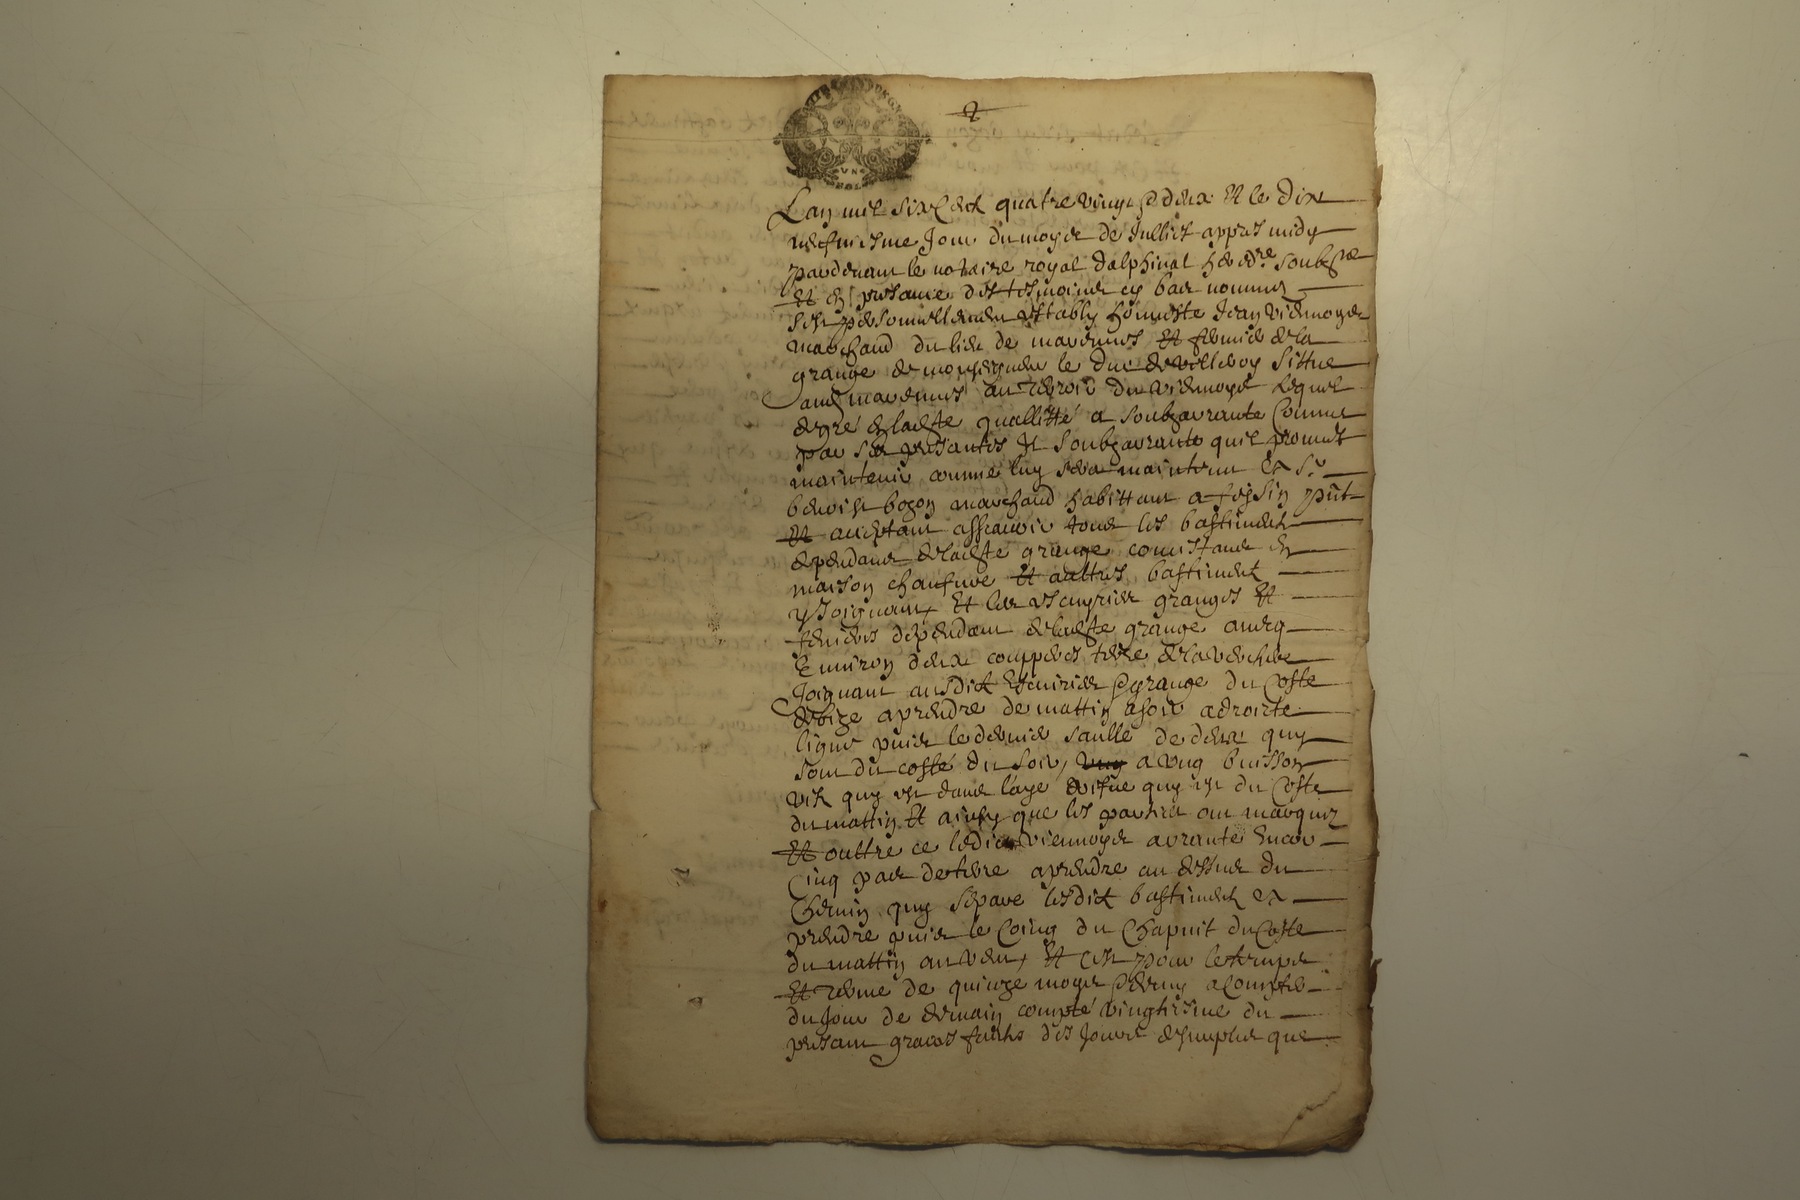 UN
SOL
2
Lan mil six Cent quatre vingt & deux Et le dix
neufviesme Jour du moys de Juillet appres midy
pardevant le notaire royal dalphinal hered.re soubz.né
Et en presance des tesmoins cy bas nommes
sest personnellement estably honneste Jean viennoys
marchand du lieu de marennes Et fermier de la
grange de monseigneur le duc de villeroy sittue
aud marennes au terroir du viennoys Lequel
de gré en ladte quallitté a soubzarranté Comme
par ses presantes Il soubzarrante quil promet
maintenir comme luy sera maintenu a Sr
benoist bozon marchand habittant a feysin pñt
Et acceptant assavoir tous les bastiments
dependant de ladte grange consistant en
maison chauffure Et aultres bastiments
y Joignant Et les escuyries granges Et
feniers dependant de ladte grange avecq
Environ deux couppees terre de la verchere
Joignant ausdits Escuiries & grange du Coste
de bize a prendre de mattin a soir a droicte
ligne puis le dernier saulle de deux quy
sont du costé du soir, ung a ung buisson
vis quy est dans laye quy est du Coste
du mattin Et ainsy que les parties ont marqué
Et oultre ce ledit viennoys arrante Encor
Cinq pas de terre a prendre au dessus du
Chemin quy separe lesdits bastiments a
prendre puis le Coing du Chapuit du Coste
du mattin au vent, Et cest pour le temps
Et terme de quinze moys & demy a Compter
du Jour de demain compté vingtiesme du
presant graces faicts des Jours de plus que